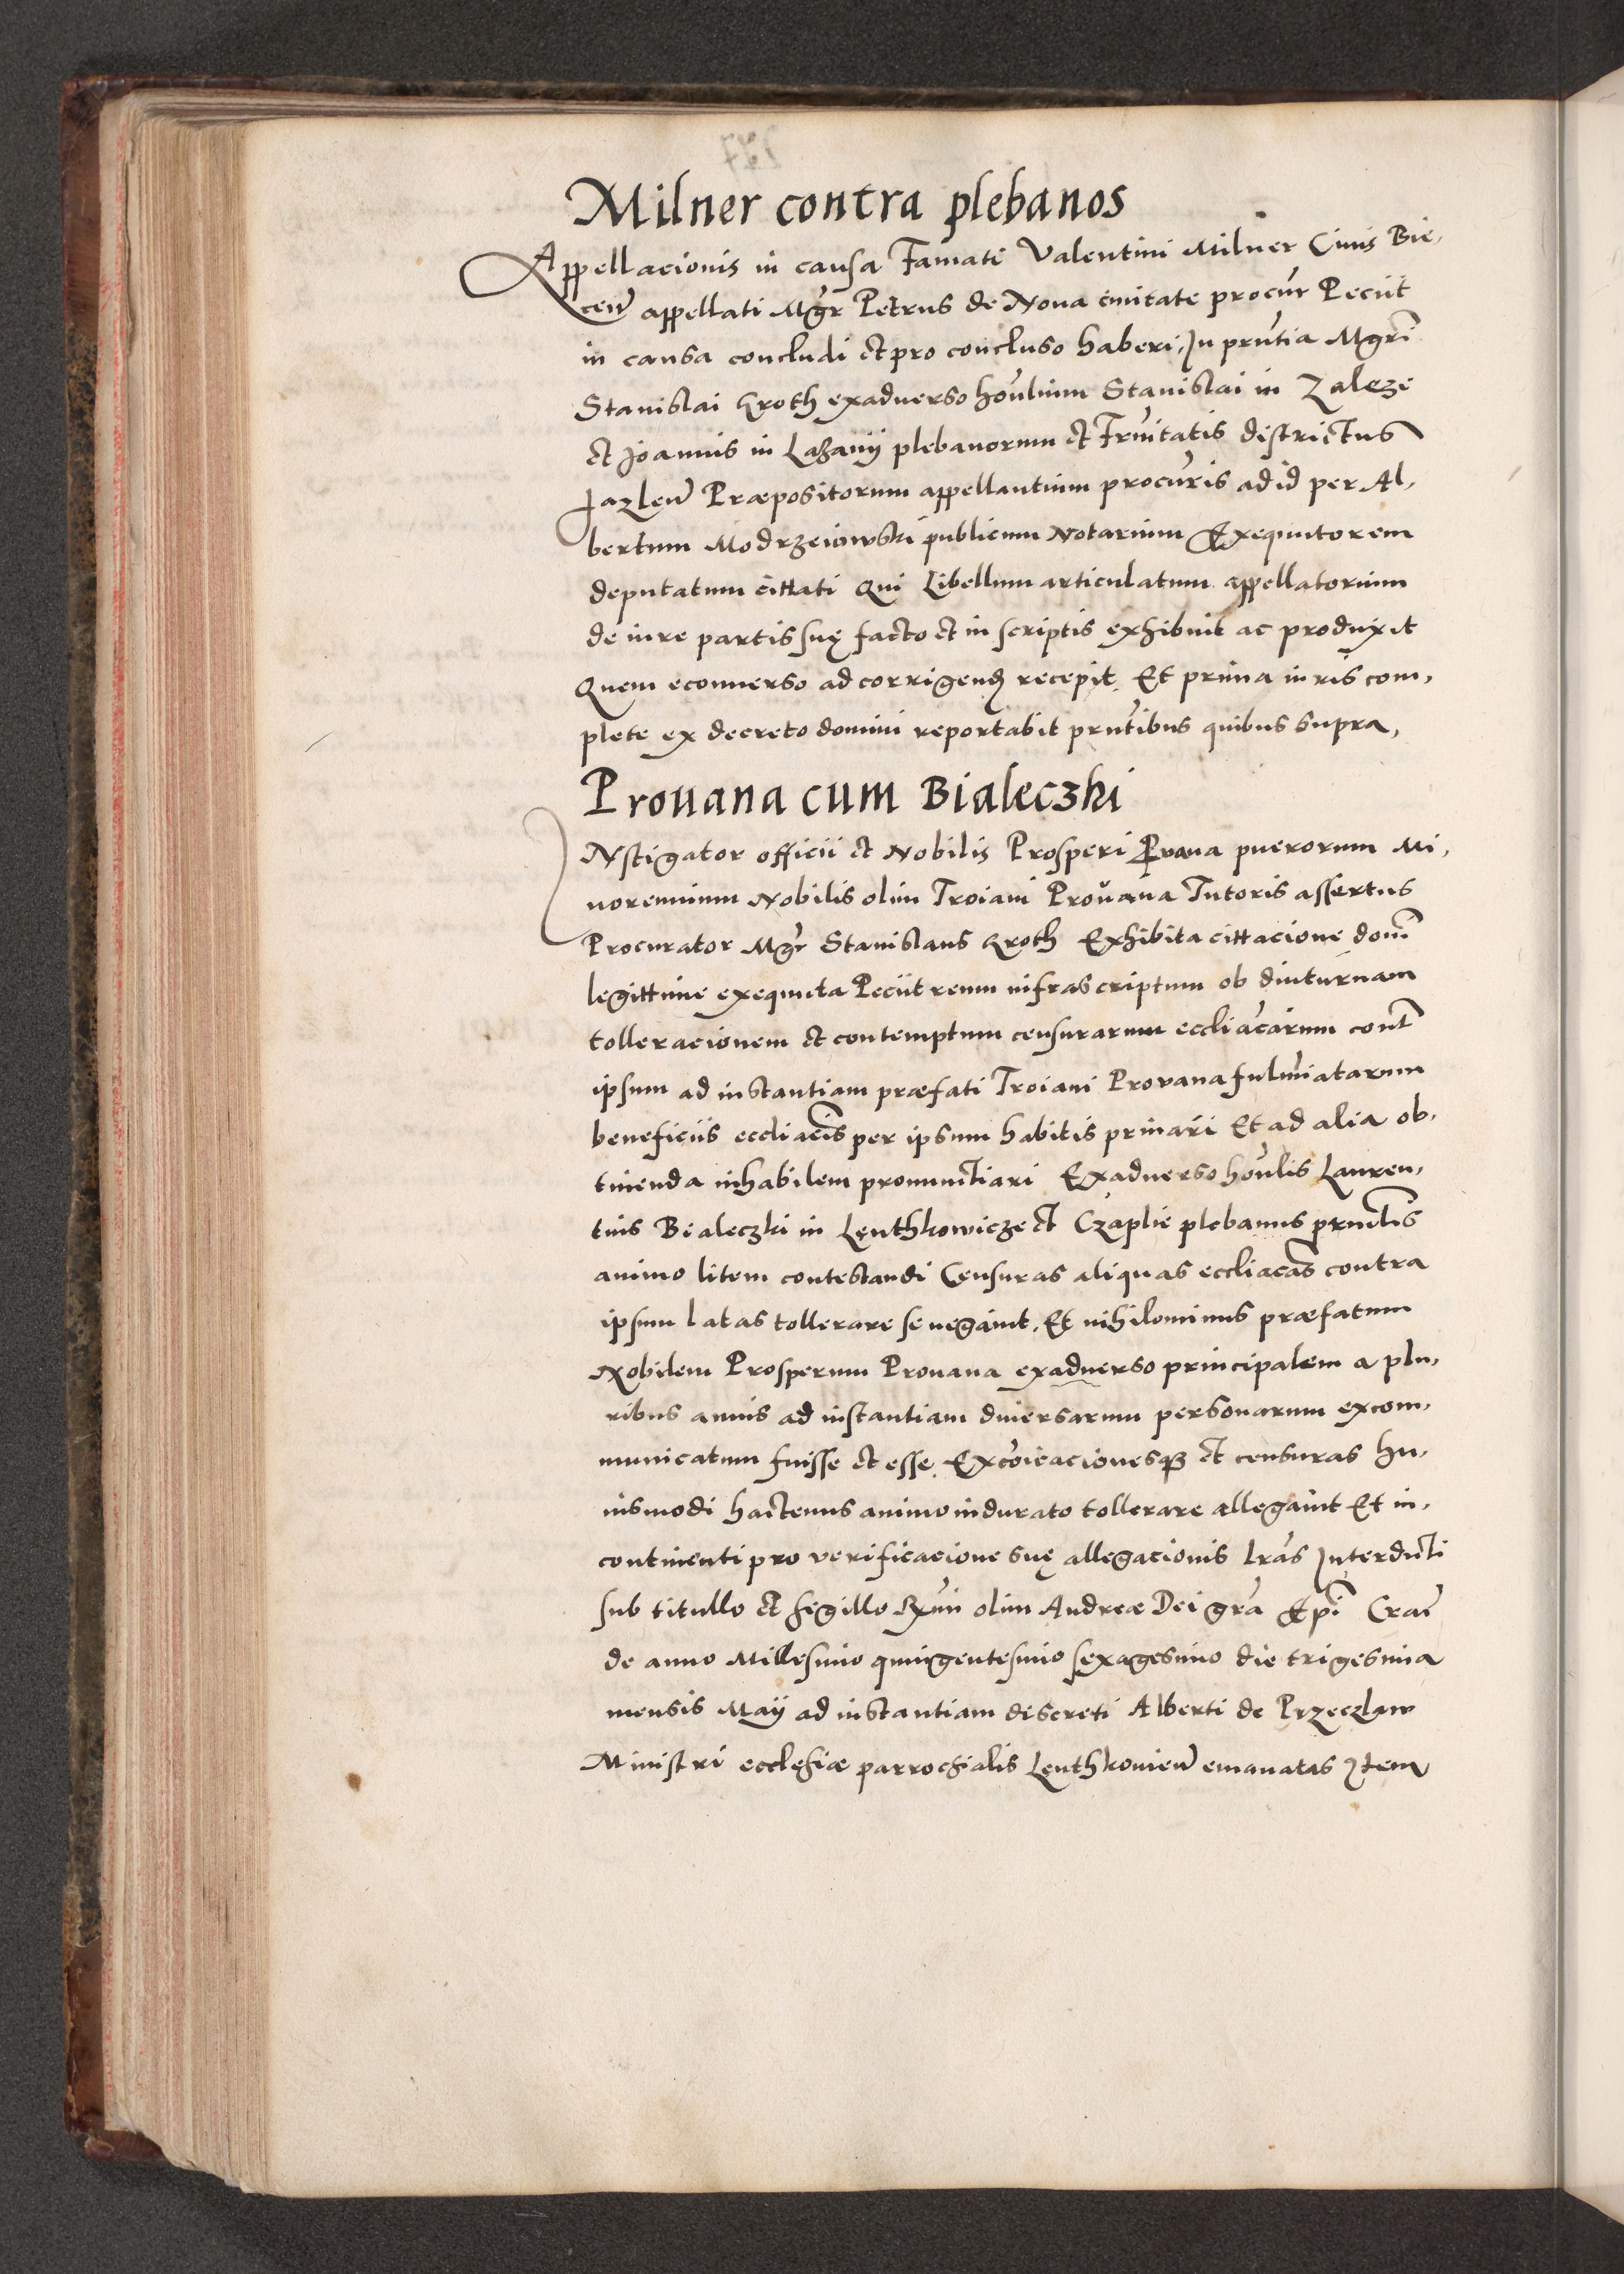 Milner contra plebanos
Appellacionis in causa Famati Valentini Milner Ciuis Bie,
cen̄ appellati Mgr̄ Petrus de Noua ciuitate procur̄ Peciit
in causa concludi et pro concluso haberi, In pn̄tia Mgrī
Stanislai Groth exaduerso hon̄lium Stanislai in Zaleze
et Joannis in Lazanij plebanorum et Trinitatis districtus
Jazlen̄ Præpositorum appellantium procur̄is ad id per Al,
bertum Modrzeiowski publicum Notarium Exequutorem
deputatum cittati Qui Libellum articulatum appellatorium
de iure partis suę facto et in scriptis exhibuit ac produxit
Quem econuerso ad corrigend̄ recepit. Et prima iuris com,
plete ex decreto domini reportabit pn̄tibus quibus supra,
Prouana cum Bialeczki
INstigator officii et Nobilis Prosperi Prouana puerorum Mi,
norennium Nobilis olim Troiani Prouana Tutoris assertus
Procurator Mgr̄ Stanislaus Groth Exhibita cittacione domī
legittime exequuta Peciit reum infrascriptum ob diuturnam
tolleracionem et contemptum censurarum eccliācarum cont̄
ipsum ad instantiam præfati Troiani Prouana fulminatarum
beneficiis eccliācis per ipsum habitis priuari Et ad alia ob,
tinenda inhabilem pronunctiari Exaduerso hon̄lis Lauren,
tius Bialeczki in Lenthkowicze et Czaplie plebanus prin̄clis
animo litem contestandi Censuras aliquas eccliācas contra
ipsum latas tollerare se negauit. Et nihilominus præfatum
Nobilem Prosperum Prouana exaduerso principalem a plu,
ribus annis ad instantiam diuersarum personarum excom,
municatum fuisse et esse. Excōicacionesqȝ et censuras hu,
iusmodi hactenus animo indurato tollerare allegauit Et in,
continenti pro verificacione suę allegacionis lrās Interdicti
sub titullo et sigillo Rx̄mi olim Andreæ Dei grā Epī Crac̄
de anno Millesimo quingentesimo sexagesimo die trigesima
mensis Maij ad instantiam discreti Alberti de Przeczlaw
Ministri ecclesiæ parrochialis Lenthkouien̄ emanatas Item